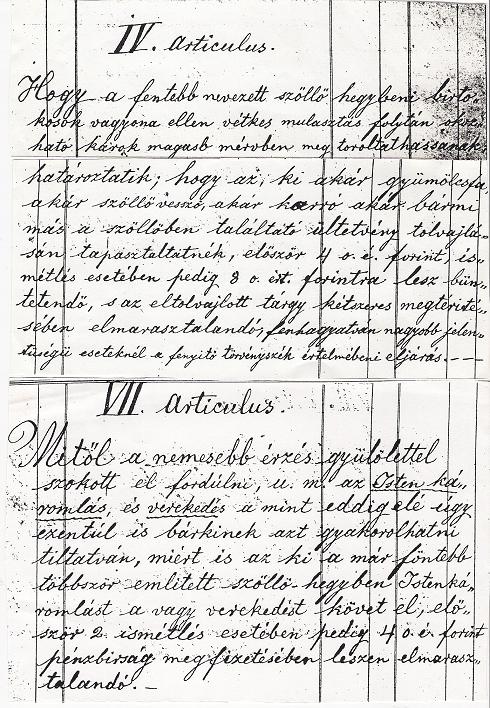 IV. Articulus.
Hogy a fentebb nevezett szőllő hegybeni birto-
kosok vagyona ellen vétkes mulasztás folytán okoz-
ható károk magasb mérvben meg toroltathassanak,
határoztatik; hogy az, ki akár gyümölcsfa
akár szöllővessző, akár karró akár bármi
más a szöllőben találtató ültetvény tolvajlá-
sán tapasztaltatnék, először 4 o. é. forint, is-
métlés esetében pedig 8 o. ért. forintra lesz bün-
tetendő, s az eltolvajlott tárgy kétszeres megtérité-
sében elmarasztalandó, fenhagyatván nagyobb jelen-
tőségü eseteknél a fenyitő törvényszék értelmébeni eljárás. - - -
VII. Articulus.
Mitől a nemesebb érzés gyülölettel
szokott el fordúlni, u. m. az Isten ká-
romlás, és verekedés a mint eddigelé úgy
ezentúl is bárkinek azt gyakorolhatni
tiltatván, miért is az ki a már föntebb
többször emlitett szöllő-hegyben Istenká-
romlást a vagy verekedést követ el, elő-
ször 2. ismétlés esetében pedig 4 o. é. forint
pénzbirság megfizetésében leszen elmarasz-
talandó. -